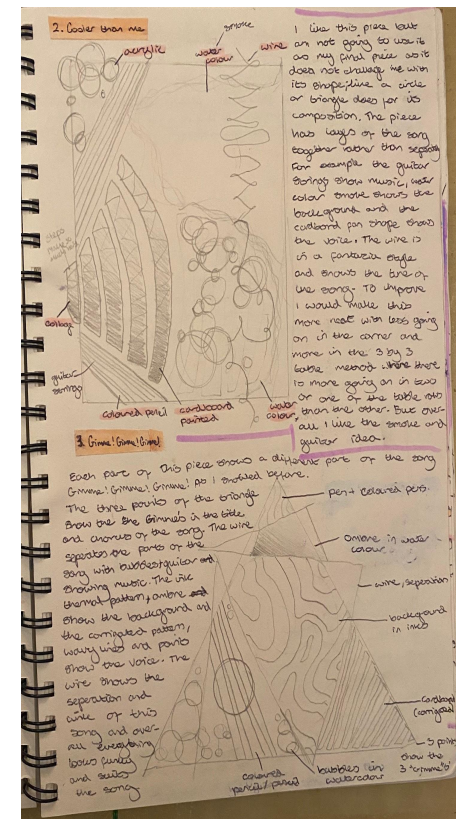 2. Cooler than me
smoke
acrylic
water
colour
wine
I like this piece but
am not going to use it
as my final piece as it
does not challenge me with
its shape, like a circle
or triangle does for its
composition. The piece
has layers of the song
together rather than
For example the guitar
strings show music, water
colour smoke shows the
background and the
cardboard fan shape shows
the voice. The wire is
in a fantasia style
and shows the tune of
the song. To improve
I would make this
more neat with less going
on in the corner and
more in the 3 by 3
table method where there
is more going on in two
or one of the table
than the other. But over-
all I like the smoke and
guitar idea.
guitar
strings
coloured pencil
cardboard
painted
water
colour
3. Gimme! Gimme! Gimme!
Each part of this piece shows a different part of the song
Gimme! Gimme! Gimme! As I before.
The three points of the triangle
show the the Gimme's in the title
and chorus of the song. The wire
seperates the parts of the
song with bubbles+guitar
showing music. The
thermal pattern + ombre
show the background and
the corrigated pattern,
wavy lines and points
show the voice. The
wire shows the
seperation and
of this
song and over-
all everything
looks funky
and suits
the song
pen + coloured
ombre in water
colour
wire, seperation
background
in inks
cardboard
(corrigated
3 points
show the
3 "Gimme"s'
coloured
pencil/
bubbles in
watercolour